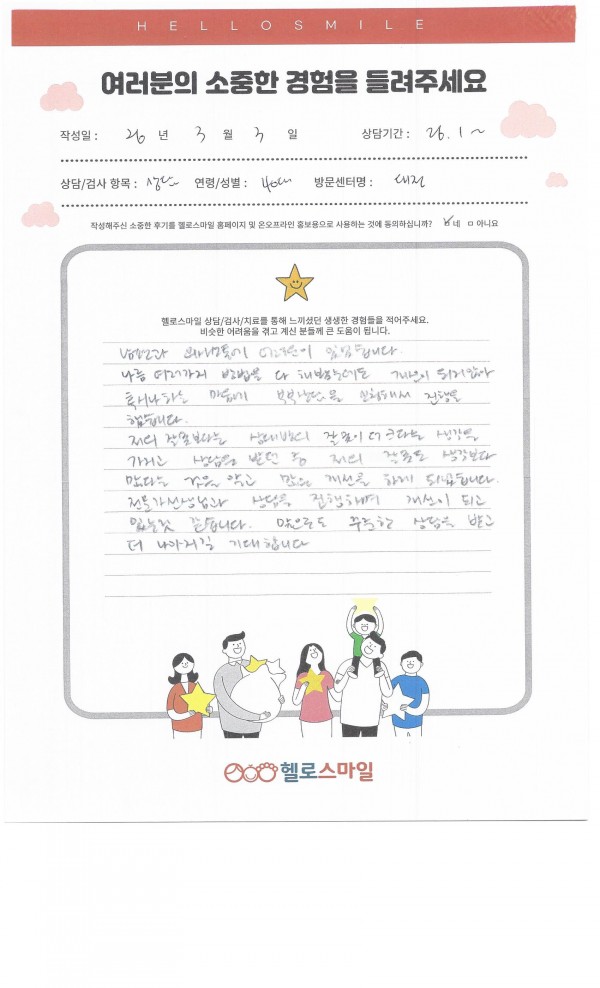 HELLOSMILE
여러분의 소중한 경험을 들려주세요
작성일 : 26 년 3 월 3 일 상담기간 : 26. 1 ~
상담/검사 항목 : 상담 연령/성별 : 40대 방문센터명 : 대전
작성해주신 소중한 후기를 헬로스마일 홈페이지 및 온오프라인 홍보용으로 사용하는 것에 동의하십니까? ☑네 ㅁ아니요
헬로스마일 상담/검사/치료를 통해 느끼셨던 생생한 경험들을 적어주세요.
비슷한 어려움을 겪고 계신 분들께 큰 도움이 됩니다.
남편과 어려움이 있었습니다.
나름 여러가지 방법을 다 해봤는데도 개선이 되지않아
혹시나하는 마음에 부부상담을 신청해서 진행을
했습니다.
저의 잘못보다는 상대방의 잘못이 더 크다는 생각을
가지고 상담을 받던 중 저의 잘못도 생각보다
많다는 것을 알고 많은 개선을 하게 되었습니다.
전문가선생님과 상담을 진행하며 개선이 되고
있는것 같습니다. 앞으로도 꾸준한 상담을 받고
더 나아지길 기대합니다
헬로스마일